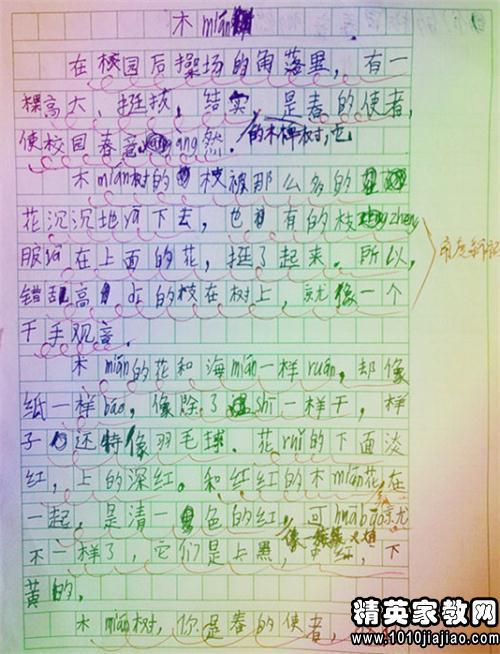 木mián
在校园后操场的角落里,有一
棵高大、挺拔、结实
的木棉树,它
是春的使者,
使校园春意 àng然.
木mián树的枝被那么多的
花沉沉地 下去,也有的枝 zhēng
服 在上面的花,挺了起来。所以,
错乱高 的枝在树上,就像一个
千手观音.
木mián的花和海mián一样ruǎn,却像
纸一样báo,像除了shī一样干,样
子还特像羽毛球.花ruǐ的下面淡
红,上的深红。和红红的木mián花在
一起,是清一色的红,可huā bāo就
像一簇簇火焰
不一样了,它们是上黑,中红,下
黄的,
木mián树,你是春的使者,
精英家教网
www.1010jiajiao.com